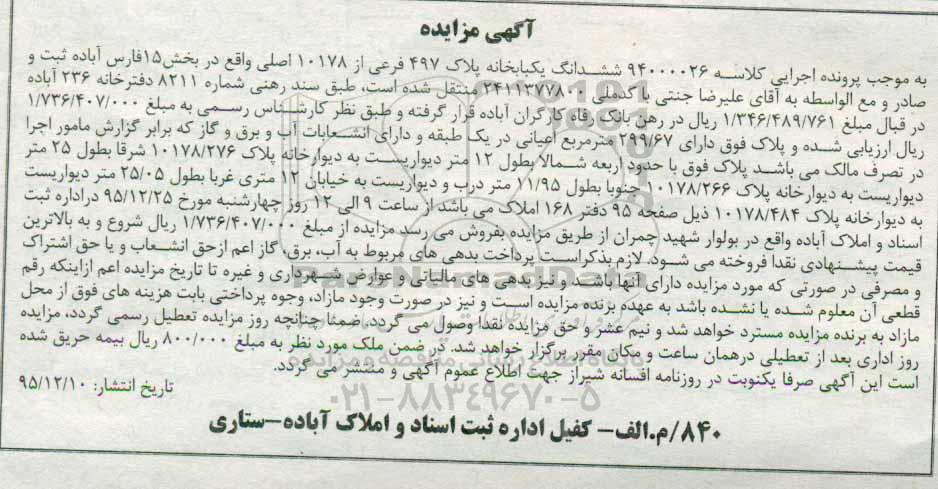 آگهی مزایده
به موجب پرونده اجرایی کلاسه ۹۴۰۰۰۰۲۶ ششدانگ یکبابخانه پلاک ۴۹۷ فرعی از ۱۰۱۷۸ اصلی واقع در بخش۱۵فارس آباده ثبت و
صادر و مع الواسطه به آقای علیرضا جنتی با کدملی ۲۴۱۱۳۷۷۸۰۰ منتقل شده است، طبق سند رهنی شماره ۸۲۱۱ دفترخانه ۲۳۶ آباده
در قبال مبلغ ۱/۳۴۶/۴۸۹/۷۶۱ ریال در رهن بانک رفاه کارگران آباده قرار گرفته و طبق نظر کارشناس رسمی به مبلغ ۱/۷۳۶/۴۰۷/۰۰۰
ریال ارزیابی شده و پلاک فوق دارای ۲۹۹/۶۷ مترمربع اعیانی در یک طبقه و دارای انشعابات آب و برق و گاز که برابر گزارش مامور اجرا
در تصرف مالک می باشد پلاک فوق با حدود اربعه شمالا بطول ۱۲ متر دیواریست به دیوارخانه پلاک ۱۰۱۷۸/۲۷۶ شرقا بطول ۲۵ متر
دیواریست به دیوارخانه پلاک ۱۰۱۷۸/۲۶۶ جنوبا بطول ۱۱/۹۵ متر درب و دیواریست به خیابان ۱۲ متری غربا بطول ۲۵/۰۵ متر دیواریست
به دیوارخانه پلاک ۱۰۱۷۸/۴۸۴ ذیل صفحه ۹۵ دفتر ۱۶۸ املاک می باشد از ساعت ۹ الی ۱۲ روز چهارشنبه مورخ ۹۵/۱۲/۲۵ دراداره ثبت
اسناد و املاک آباده واقع در بولوار شهید چمران از طریق مزایده بفروش می رسد مزایده از مبلغ ۱/۷۳۶/۴۰۷/۰۰۰ ریال شروع و به بالاترین
قیمت پیشنهادی نقدا فروخته می شود. لازم بذکراست پرداخت بدهی های مربوط به آب، برق، گاز اعم ازحق انشعاب و یا حق اشتراک
و مصرفی در صورتی که مورد مزایده دارای آنها باشد ونیز بدهی های مالیاتی و عوارض شهرداری و غیره تا تاریخ مزایده اعم ازاینکه رقم
قطعی آن معلوم شده یا نشده باشد به عهده برنده مزایده است و نیز در صورت وجود مازاد، وجوه پرداختی بابت هزینه های فوق از محل
مازاد به برنده مزایده مسترد خواهد شد و نیم عشر و حق مزایده نقدا وصول می گردد. ضمنا چنانچه روز مزایده تعطیل رسمی گردد، مزایده
روز اداری بعد از تعطیلی درهمان ساعت و مکان مقرر برگزار خواهد شد. در ضمن ملک مورد نظر به مبلغ ۸۰۰/۰۰۰ ریال بیمه حریق شده
است این آگهی صرفا یکنوبت در روزنامه افسانه شیراز جهت اطلاع عموم آگهی و منتشر می گردد.
تاریخ انتشار: ۹۵/۱۲/۱۰
۰۲۱-۸۸۳۴۹۶۷۰-۵
۸۴۰/م.الف- کفیل اداره ثبت اسناد و املاک آباده-ستاری